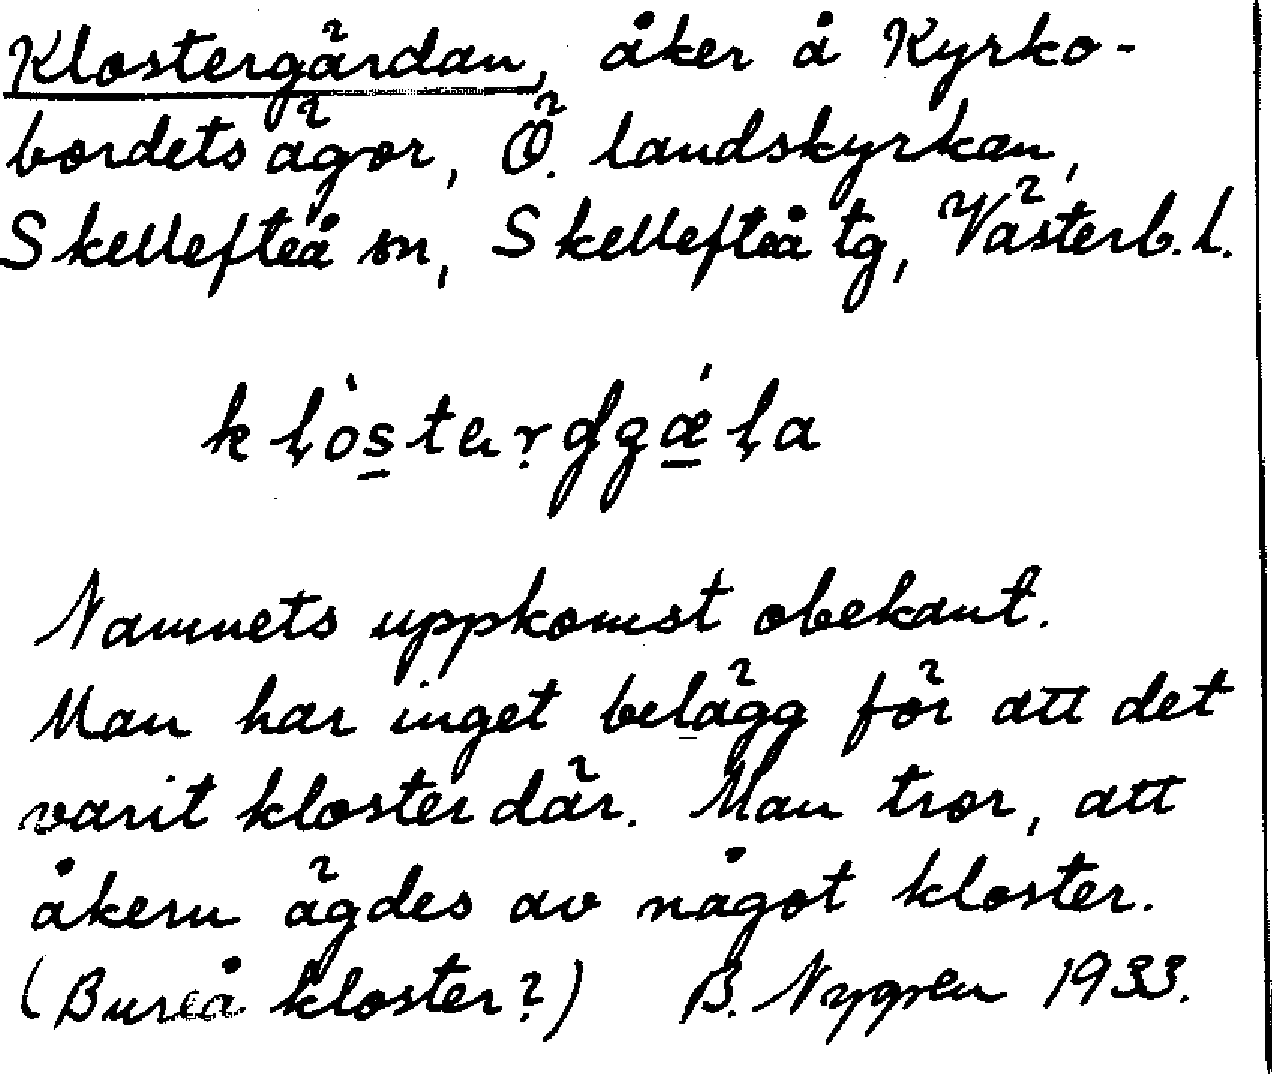 Klostergärdan, åker å Kyrko-
bordets ägor, Ö. landskyrkan,
Skellefteå sn, Skellefteå tg, Västerb.l.
Namnets uppkomst obekant.
Man har inget belägg för att det
varit kloster där. Man tror, att
åkern ägdes av något kloster.
(Bureå kloster?) B. Nygren 1933.